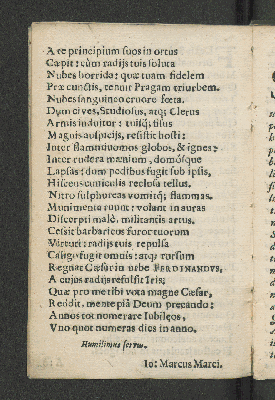 A te principium suos in ortus
Cæpit: cùm radijs tuis soluta
Nubes horrida: quæ tuam fidelem
Præ cunctis, tenuit Pragam triurbem.
Nubes sanguineo cruore fœta.
Dum cives, Studiosus, atq; Clerus
Armis induitur: tuisq́; tuus
Magnis auspicijs, resistit hosti:
Inter flammivomos globos, & ignes:
Inter rudera mœnium, domósque
Lapsas: dum pedibus fugit sub ipsis,
Hiscens cuniculis reclusa tellus.
Nitro sulphoreas vomitq́; flammas.
Munimenta ruunt: volant in auras
Discerpti malè, militantis artus.
Cessit barbaricus furor tuorum
Virtuti: radijs tuis repulsa
Caligo fugit omnis: atq; rursum
Regnat Cæsar in urbe FERDINANDVS,
A cujus radijs refulsit Iris;
Quæ pro me tibi vota magne Cæsar,
Reddit. mente pià Deum precando:
Annos tot numerare Iubilęos,
Vno quot numeras dies in anno.
Humilimus servus.
Io: Marcus Marci.